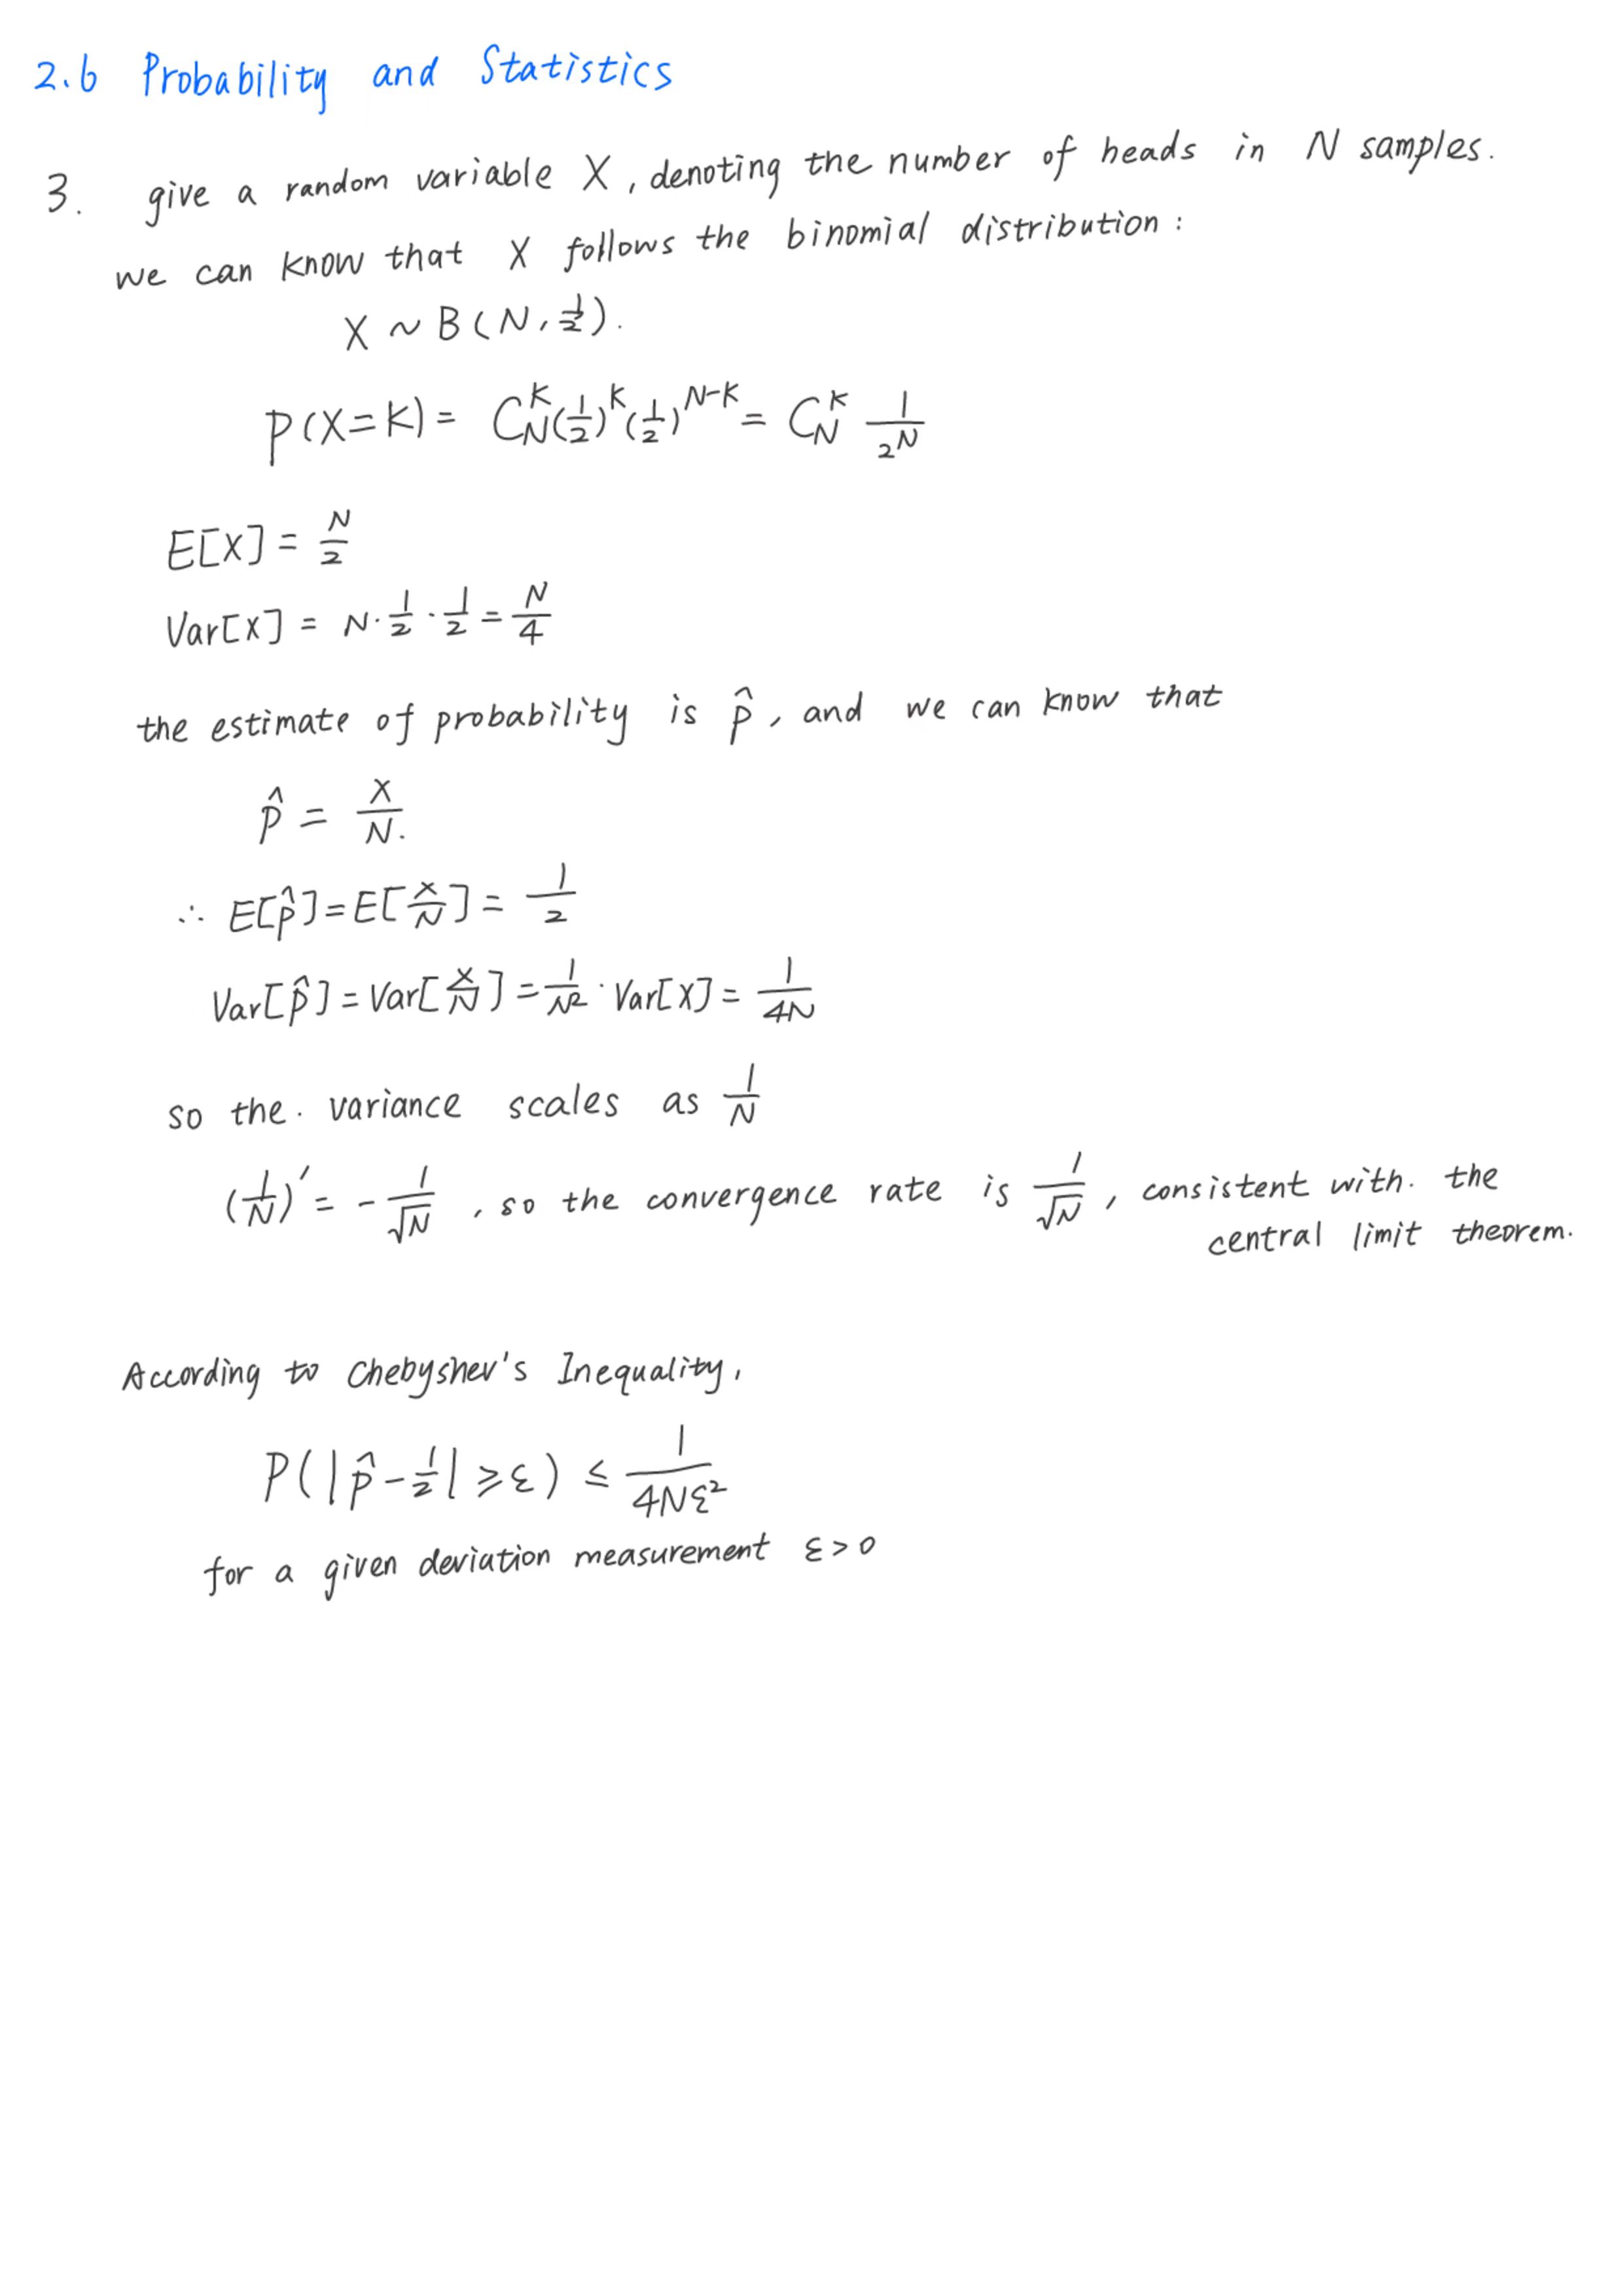 2.6 Probability and Statistics
3. give a random variable X, denoting the number of heads in N samples.
we can know that X follows the binomial distribution:
X ~ B(N, 1/2).
P(X=K) = C_N^K (1/2)^K (1/2)^{N-K} = C_N^K 1/2^N
E[X] = N/2
Var[X] = N · 1/2 · 1/2 = N/4
the estimate of probability is p̂, and we can know that
p̂ = X/N.
∴ E[p̂] = E[X/N] = 1/2
Var[p̂] = Var[X/N] = 1/N² · Var[X] = 1/4N
so the. variance scales as 1/N
(1/N)′ = - 1/√N, so the convergence rate is 1/√N, consistent with. the
central limit theorem.
According to Chebyshev's Inequality,
P(|p̂ - 1/2| ⩾ ε) ≤ 1/4Nε²
for a given deviation measurement ε > 0